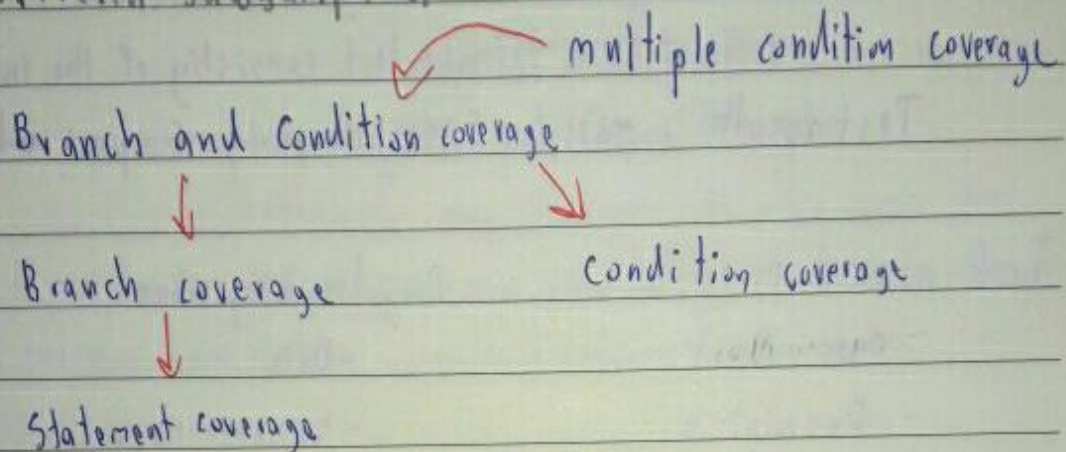 multiple condition coverage
Branch and Condition coverage
Branch coverage
Condition coverage
Statement coverage